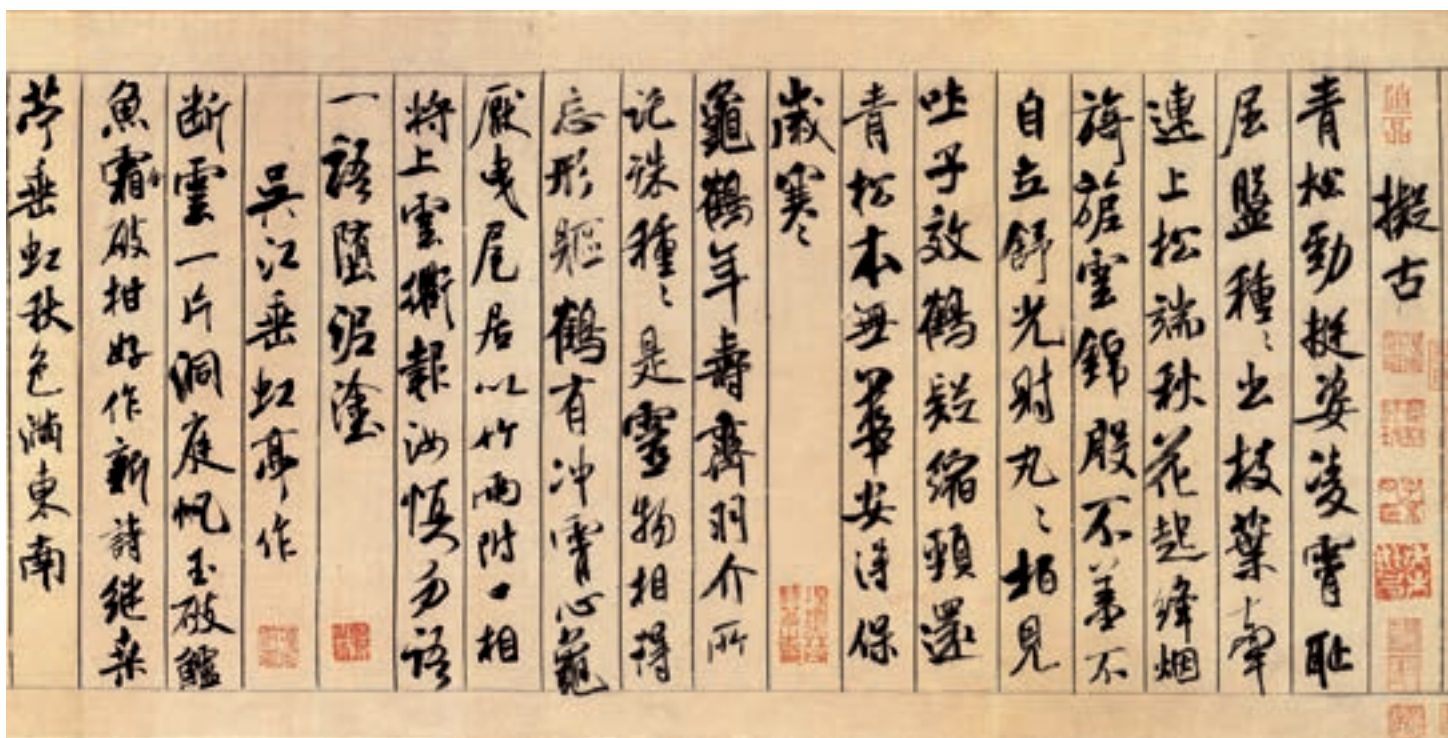 擬古
青松勁挺姿凌霄耻
屈盤種〻出枝葉牽
連上松端秋花起絳烟
旖旎雲錦殷不羞不
自立舒光射丸〻栢見
吐子效鶴疑縮頸還
青松本無華安得保
歲寒
龜鶴年壽齊羽介所
託殊種〻是靈物相得
忘形軀鶴有冲霄心龜
厭曳尾居以竹兩附口相
將上雲衢報汝慎勿語
一語墮泥塗
吳江垂虹亭作
断雲一片洞庭帆玉破鱸
魚霜破柑好作新詩繼桑
苧垂虹秋色滿東南